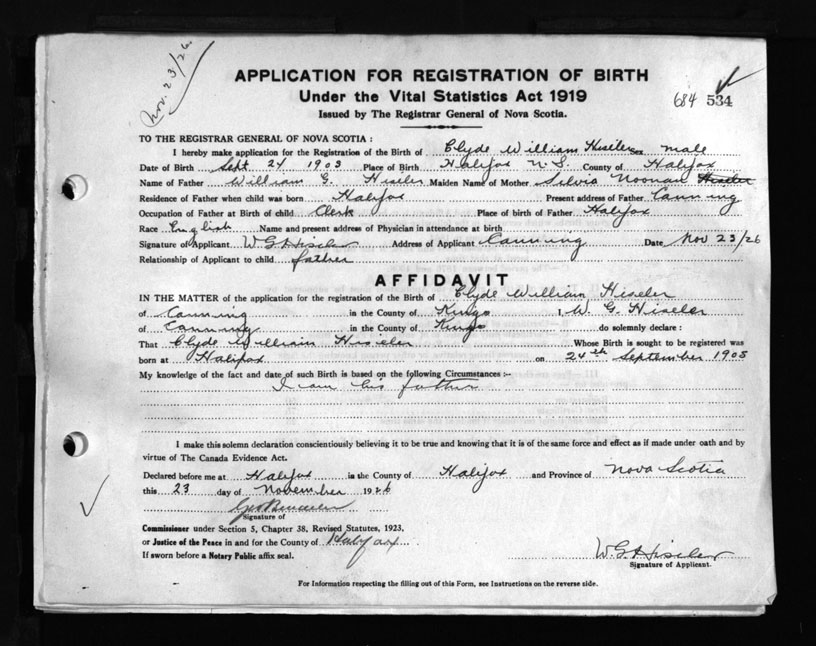 Nov. 23/26
APPLICATION FOR REGISTRATION OF BIRTH
Under the Vital Statistics Act 1919
684 534
Issued by The Registrar General of Nova Scotia.
TO THE REGISTRAR GENERAL OF NOVA SCOTIA :
I hereby make application for the Registration of the Birth of Clyde William Hiseler Sex male
Date of Birth Sept 24 1905 Place of Birth Halifax N.S. County of Halifax
Name of Father William G. Hiseler Maiden Name of Mother Silvia Noonan Hiseler
Residence of Father when child was born Halifax Present address of Father Canning
Occupation of Father at Birth of child Clerk Place of birth of Father Halifax
Race English Name and present address of Physician in attendance at birth
Signature of Applicant W G Hiseler Address of Applicant Canning Date Nov 23/26
Relationship of Applicant to child father
AFFIDAVIT
IN THE MATTER of the application for the registration of the Birth of Clyde William Hiseler
of Canning in the County of Kings I, W. G. Hiseler
of Canning in the County of Kings do solemnly declare :
That Clyde William Hiseler Whose Birth is sought to be registered was
born at Halifax on 24th September 1905
My knowledge of the fact and date of such Birth is based on the following Circumstances :-
I am his father
I make this solemn declaration conscientiously believing it to be true and knowing that it is of the same force and effect as if made under oath and by
virtue of The Canada Evidence Act.
Declared before me at Halifax in the County of Halifax and Province of Nova Scotia
this 23 day of November 1926
Signature of
Commissioner under Section 5, Chapter 38, Revised Statutes, 1923,
or Justice of the Peace in and for the County of Halifax
If sworn before a Notary Public affix seal.
W G Hiseler
Signature of Applicant.
For Information respecting the filling out of this Form, see Instructions on the reverse side.